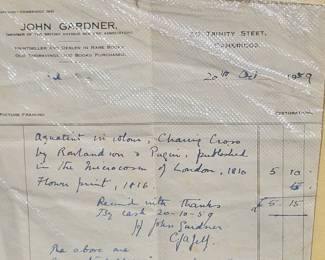 JOHN GARDNER,
(MEMBER OF THE BRITISH ANTIQUE DEALERS ASSOCIATION)
PRINTSELLER AND DEALER IN RARE BOOKS
OLD ENGRAVINGS AND BOOKS PURCHASED.
TRINITY STREET,
CAMBRIDGE.
20th Oct 1959
PICTURE FRAMING
Aquatint in colour, Charing Cross
by Rowlandson & Pugin, published
in the Microcosm of London, 1810 5 10
Flower print, 1816. 5
Received with Thanks £ 5 15
By cash 20-10-59
John Gardner
The above are